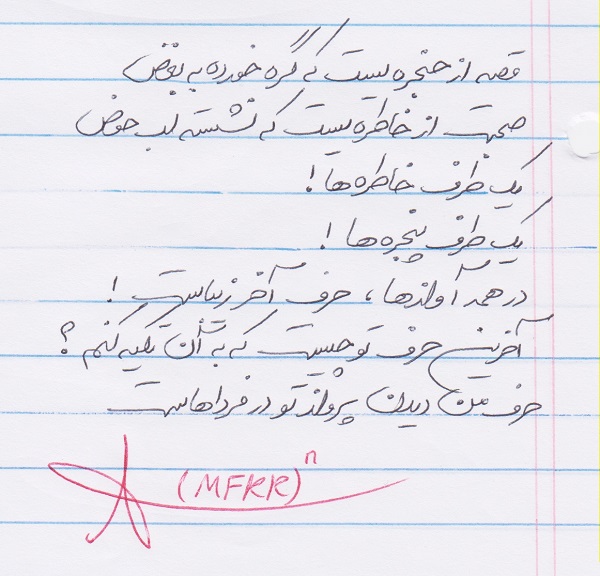 قصه از حنجره ییست که گره خورده به بغض
صحبت از خاطره ییست که نشسته لب حوض
یک طرف خاطره ها!
یک طرف پنجره ها!
در همه آوازها، حرف آخر زیباست!
آخرین حرف تو چیست که به آن تکیه کنم؟
حرف من دیدن پرواز تو در فرداهاست
(MFRR)ⁿ